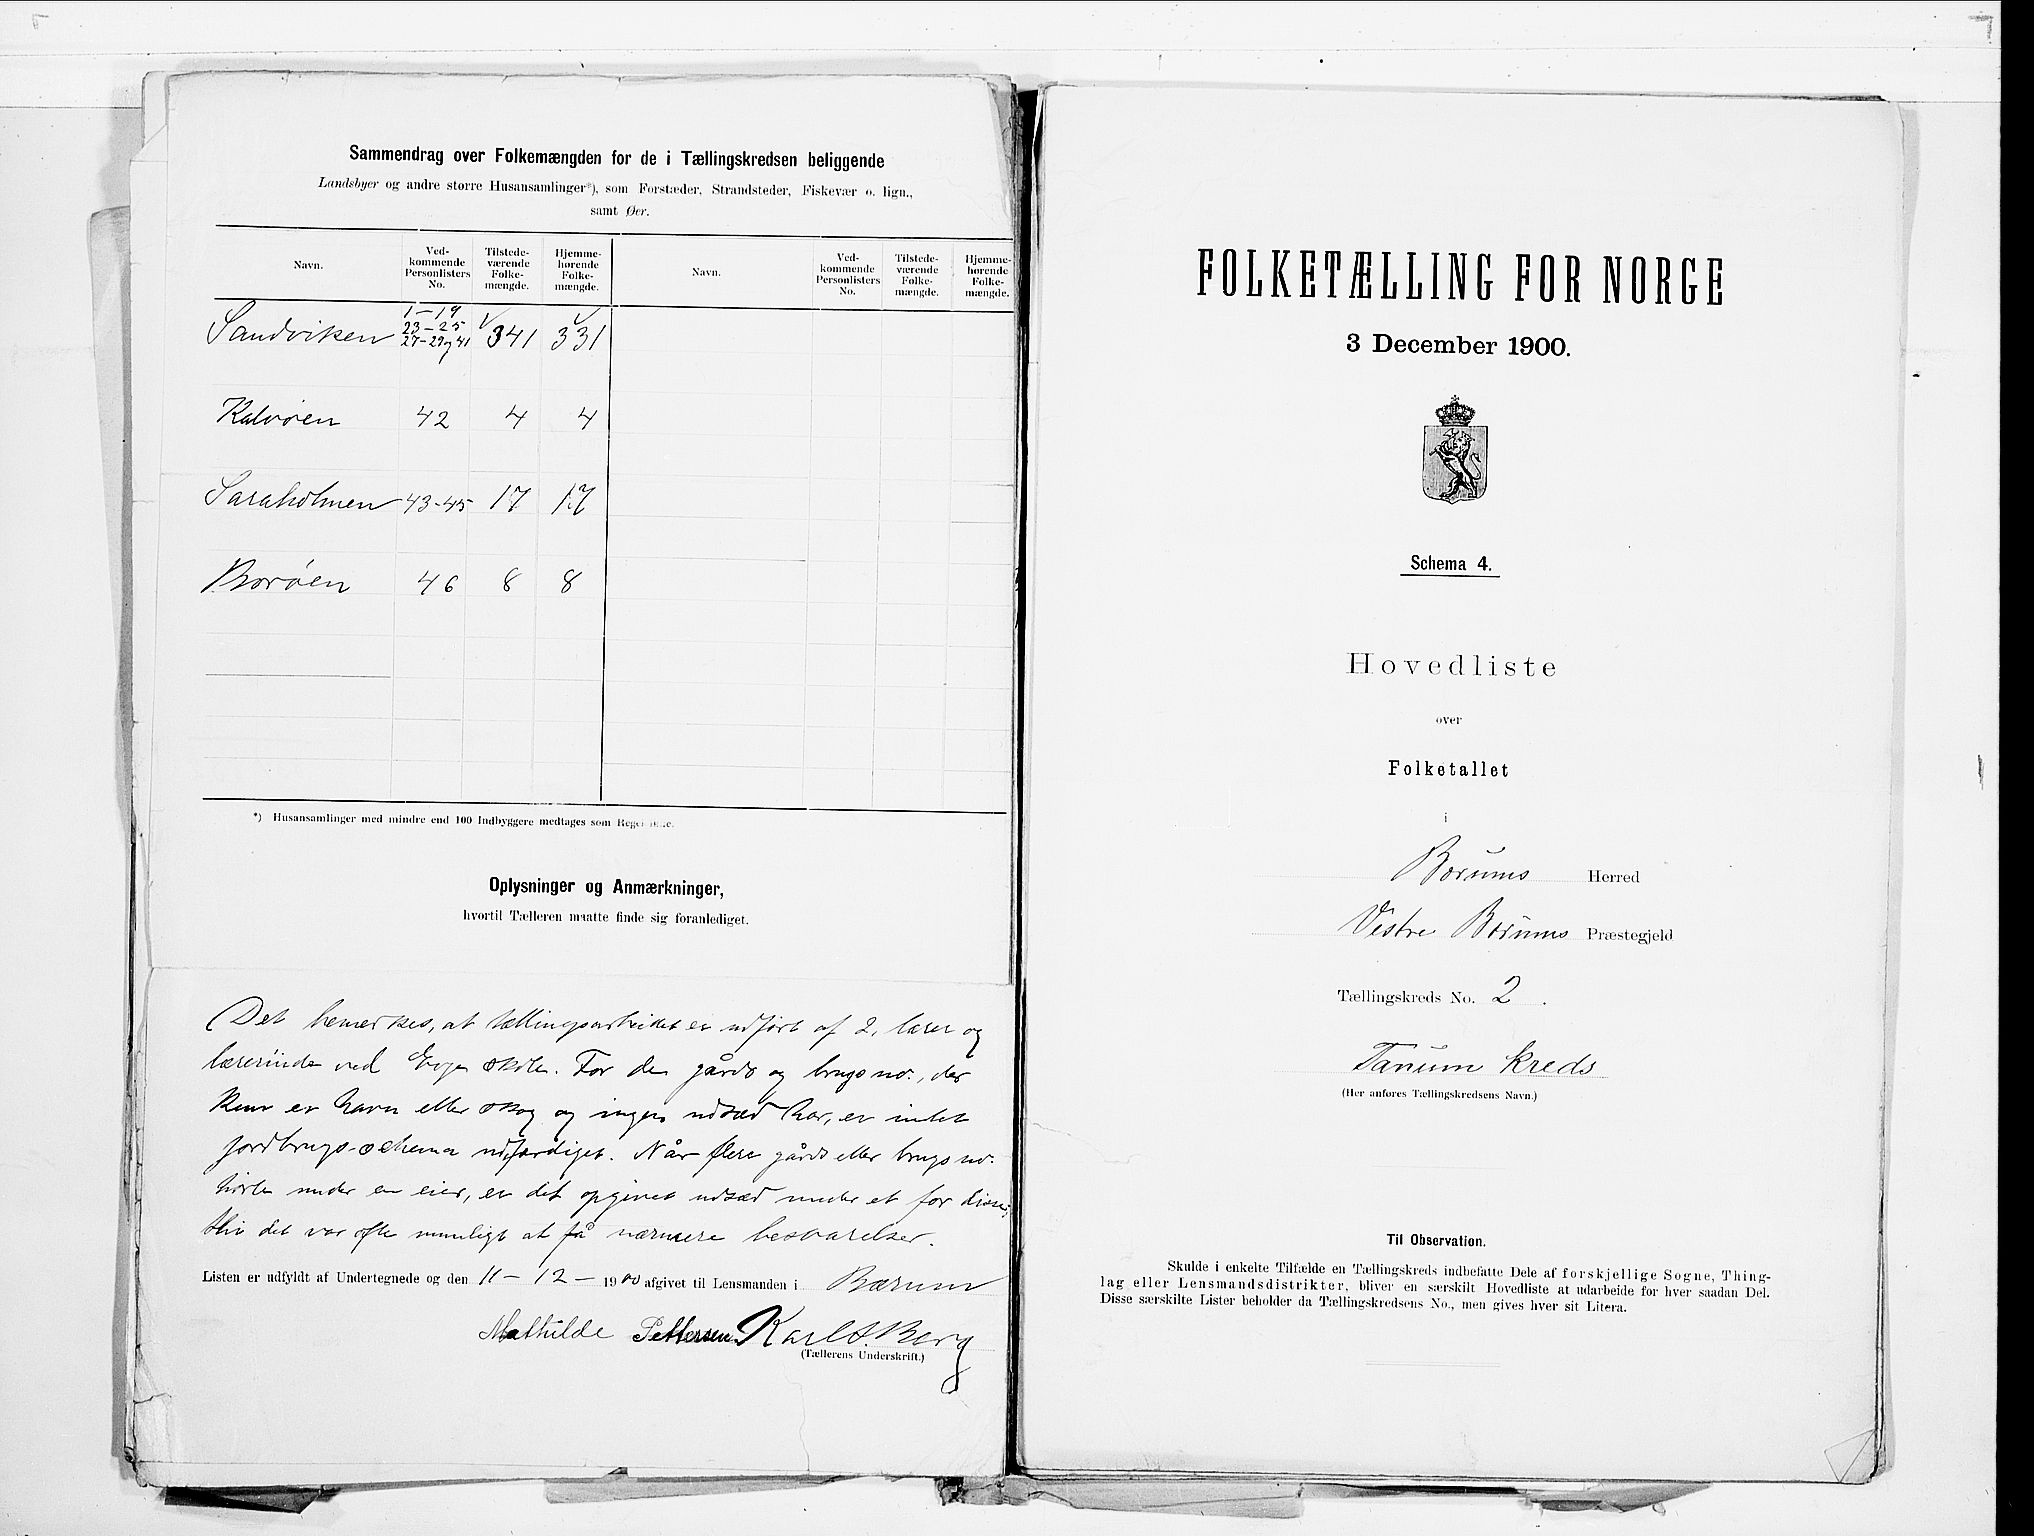 Sammendrag over Folkemængden for de i Tællingskredsen beliggende
Landsbyer og andre større Husansamlinger*), som Forstæder, Strandsteder, Fiskevær o. lign.,
samt Øer.
Navn. Ved-kommende Personlisters No. Tilstede-værende Folke-mængde. Hjemme-hørende Folke-mængde. Navn. Ved-kommende Personlisters No. Tilstede-værende Folke-mængde. Hjemme-hørende Folke-mængde.
Sandviken 1-19 23-25 27-29 og 41 341 331
Kalvøen 42 4 4
Saraholmen 43-45 17 17
Borøen 46 8 8
*) Husansamlinger med mindre end 100 Indbyggere medtages som Regel ikke.
Oplysninger og Anmærkninger,
hvortil Tælleren maatte finde sig foranlediget.
Det bemerkes, at tællingsarbeidet er udført af 2, lærer og
lærerinde ved Evje skole. For de gårds og brugs no., der
kun er havn eller skog og ingen udsæd har, er intet
jordbrugs-schema udfærdiget. Når flere gårds eller brugs no.
hörte under en eier, er det opgivet udsæd under et for disse,
thi det var ofte umuligt at få nærmere besvarelser.
Listen er udfyldt af Undertegnede og den 11 - 12 - 1900 afgivet til Lensmanden i Bærum
Mathilde Pettersen. Karl A. Berg
(Tællerens Underskrift.)
FOLKETÆLLING FOR NORGE
3 December 1900.
Schema 4.
Hovedliste
over
Folketallet
i
Bærums Herred
Vestre Bærums Præstegjeld
Tællingskreds No. 2.
Tanum kreds
(Her anføres Tællingskredsens Navn.)
Til Observation.
Skulde i enkelte Tilfælde en Tællingskreds indbefatte Dele af forskjellige Sogne, Thing-
lag eller Lensmandsdistrikter, bliver en særskilt Hovedliste at udarbeide for hver saadan Del.
Disse særskilte Lister beholder da Tællingskredsens No., men gives hver sit Litera.